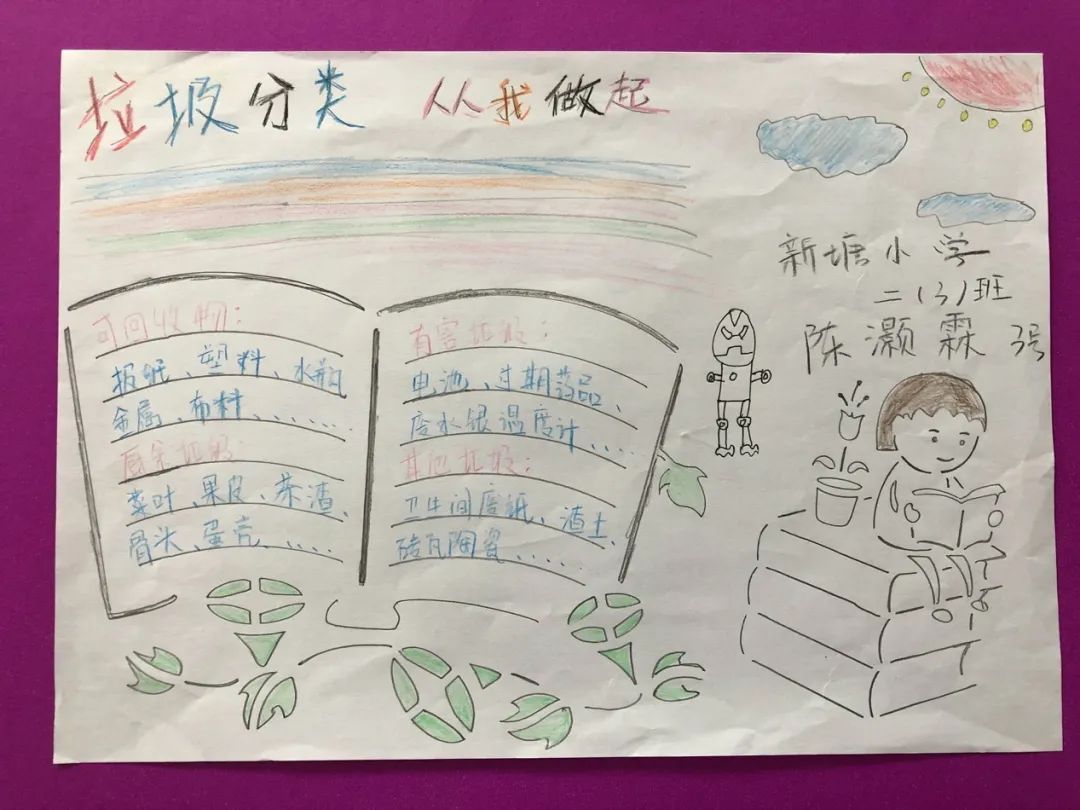 垃圾分类 人人我做起
新塘小学
二(3)班
陈灏霖 3号
可回收物:
报纸、塑料、水瓶
金属、布料、......
厨余垃圾
菜叶、果皮、茶渣、
骨头、蛋壳、.....
有害垃圾:
电池、过期药品、
废水银温度计....
其他垃圾:
卫生间废纸、渣土、
砖瓦陶瓷、.....